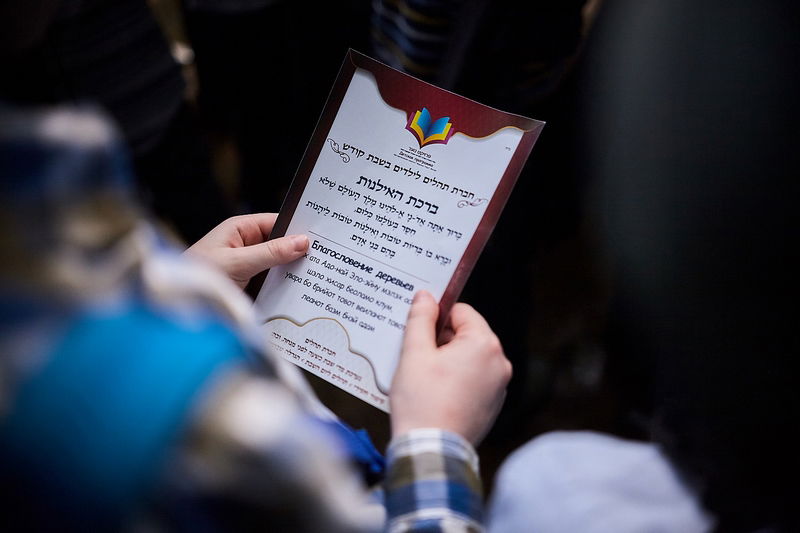 פרויקט נוער
Детская программа
חברת תהלים לילדים בשבת קודש
ברכת האילנות
בָּרוּךְ אַתָּה אַדֹ-נָי אֱ-לֹהֵינוּ מֶלֶךְ הָעוֹלָם שֶׁלֹּא
חִסַּר בְּעוֹלָמוֹ כְּלוּם,
וּבָרָא בוֹ בְּרִיּוֹת טוֹבוֹת וְאִילָנוֹת טוֹבוֹת לֵיהָנוֹת
בָּהֶם בְּנֵי אָדָם.
Благословение деревьев
ата Адо-най Эло-эйну мэлэх
шэло хисар беоламо клум,
увара бо брийот товот веиланот товот
леанот баэм бнэй адам
חברת תהלים